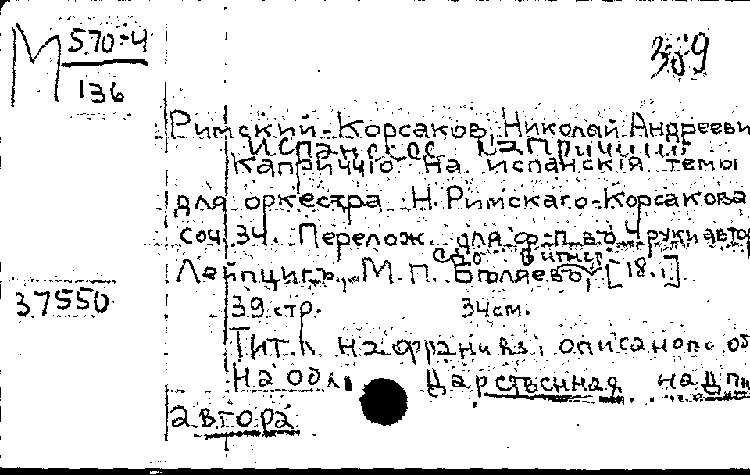 М 570-4
136
309
Римский-Корсаков, Николай Андрееви
Испанское каприччио
Каприччіо на испанскія темы
для оркестра Н. Римскаго-Корсакова
соч. 34. Перелож. для ф-п. в 4 руки авто
Лейпцигъ, М. П. Бѣляевъ, [18..]
37550
39 стр. 34 см.
Тит. л. на франц. яз., описано по об
на обл. Дарственная надпи
автора